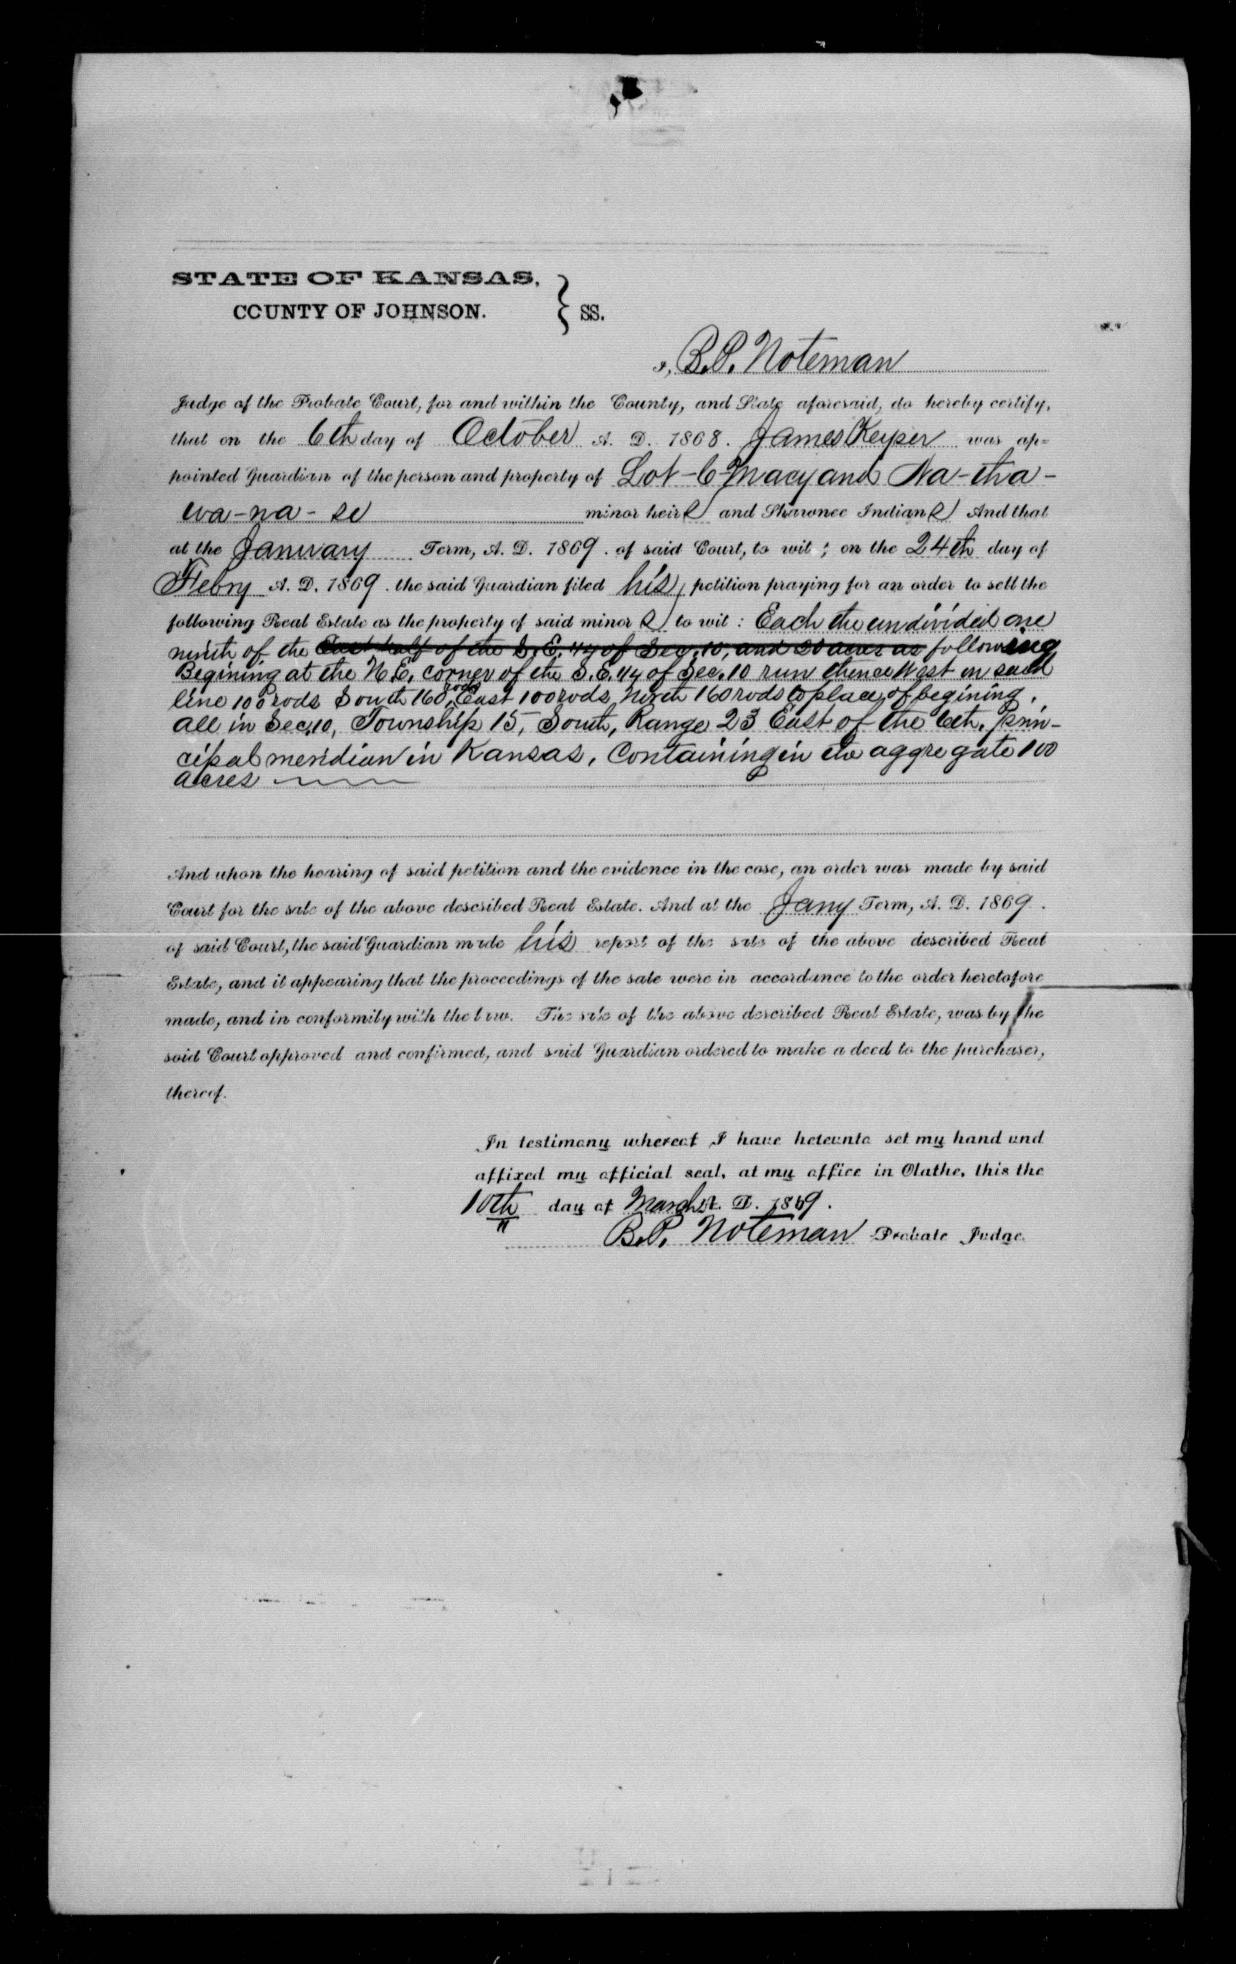 STATE OF KANSAS,
COUNTY OF JOHNSON. } SS.
I, B.P. Noteman
Judge of the Probate Court, for and within the County, and State aforesaid, do hereby certify,
that on the 6th day of October A. D. 1868. James Keyser was ap=
pointed Guardian of the person and property of Lot-C-Macy and Na-tha-
wa-na-se minor heirs and Shawnee Indians And that
at the January Term, A. D. 1869. of said Court, to wit; on the 24th day of
Febry A. D. 1869. the said Guardian filed his petition praying for an order to sell the
following Real Estate as the property of said minors to wit: Each the undivided one
ninth of the East half of the S. E. 1/4 of Sec. 10, and 20 acres as following
Begining at the N.E. corner of the S.E. 1/4 of Sec. 10 run thence West on said
line 100 rods South 160 rods East 100 rods, North 160 rods to place of begining.
all in Sec. 10, Township 15, South, Range 23 East of the 6th. Prin-
cipal meridian in Kansas, Containing in the aggregate 100
acres
And upon the hearing of said petition and the evidence in the case, an order was made by said
Court for the sale of the above described Real Estate. And at the Jany Term, A. D. 1869.
of said Court, the said Guardian made his report of the sale of the above described Real
Estate, and it appearing that the proceedings of the sale were in accordance to the order heretofore
made, and in conformity with the law. The sale of the above described Real Estate, was by the
said Court approved and confirmed, and said Guardian ordered to make a deed to the purchaser,
thereof.
In testimony whereof I have hereunto set my hand and
affixed my official seal, at my office in Olathe, this the
10th day of March A. D. 1869.
B.P. Noteman Probate Judge.